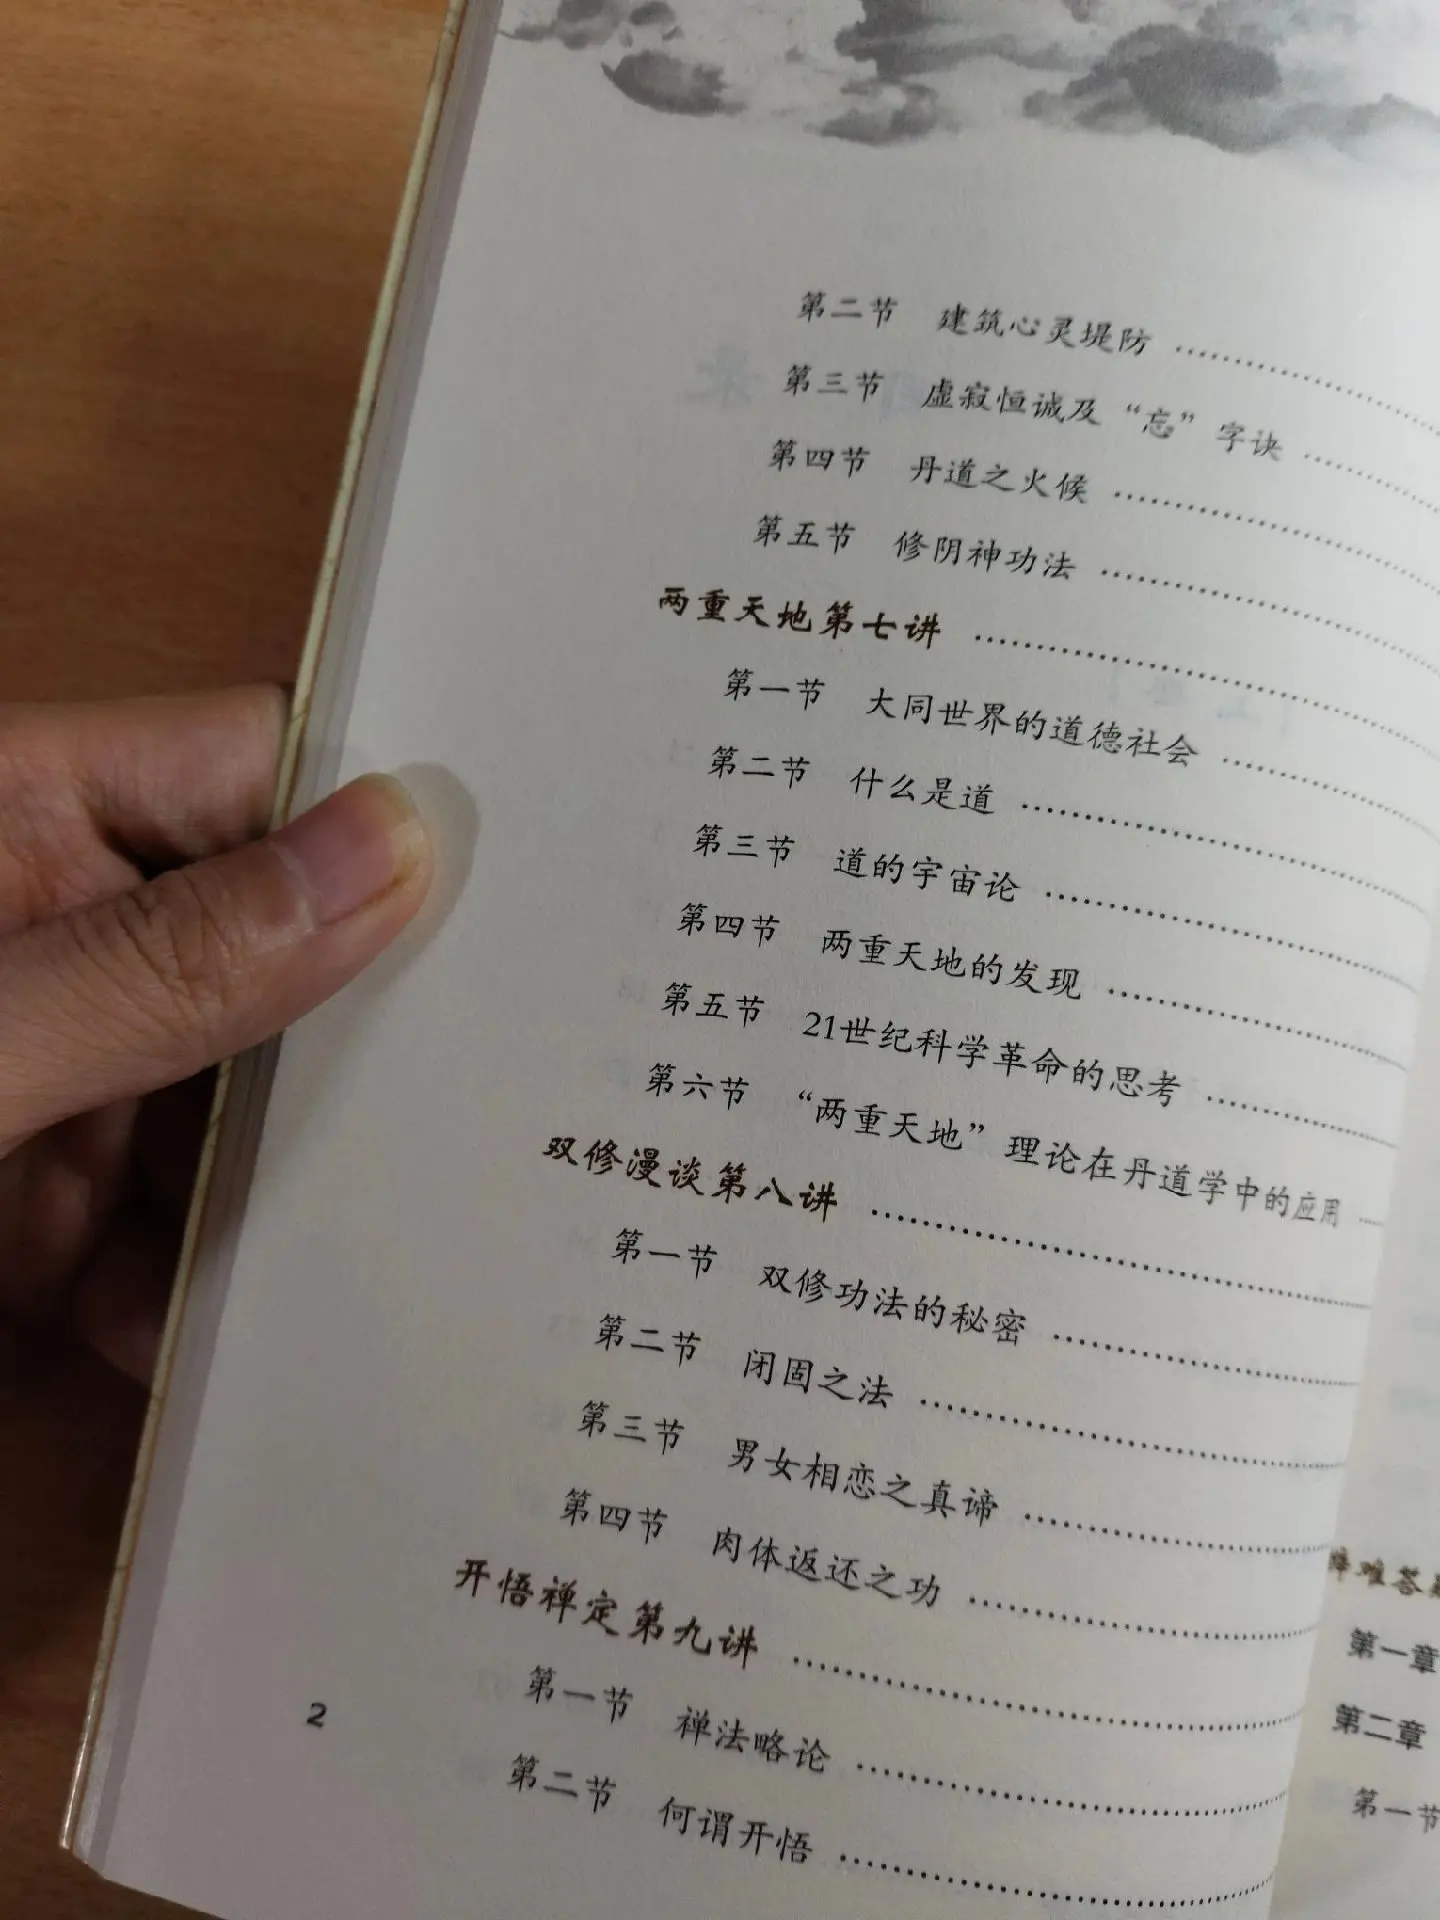 第二节 建筑心灵堤防
第三节 虚寂恒诚及“忘”字诀
第四节 丹道之火候
第五节 修阴神功法
两重天地第七讲
第一节 大同世界的道德社会
第二节 什么是道
第三节 道的宇宙论
第四节 两重天地的发现
第五节 21世纪科学革命的思考
第六节 “两重天地”理论在丹道学中的应用
双修漫谈第八讲
第一节 双修功法的秘密
第二节 闭固之法
第三节 男女相恋之真谛
第四节 肉体返还之功
开悟禅定第九讲
第一节 禅法略论
第二节 何谓开悟
2
难答
第一章
第二章
第一节